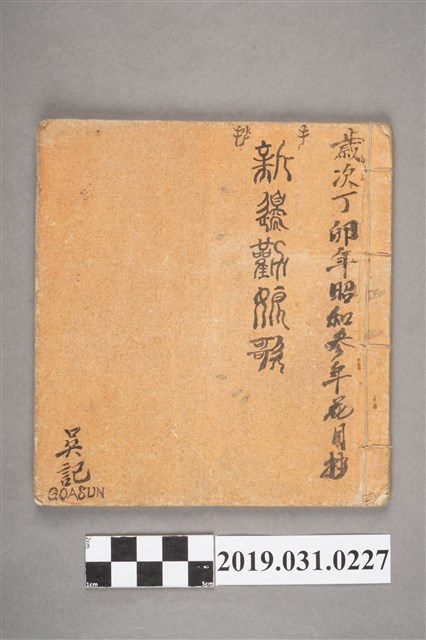 歲次丁卯年昭和參年花月抄
手抄
新編勸娘歌
吳記
GOASUN
2cm
1cm
5cm
2019.031.0227